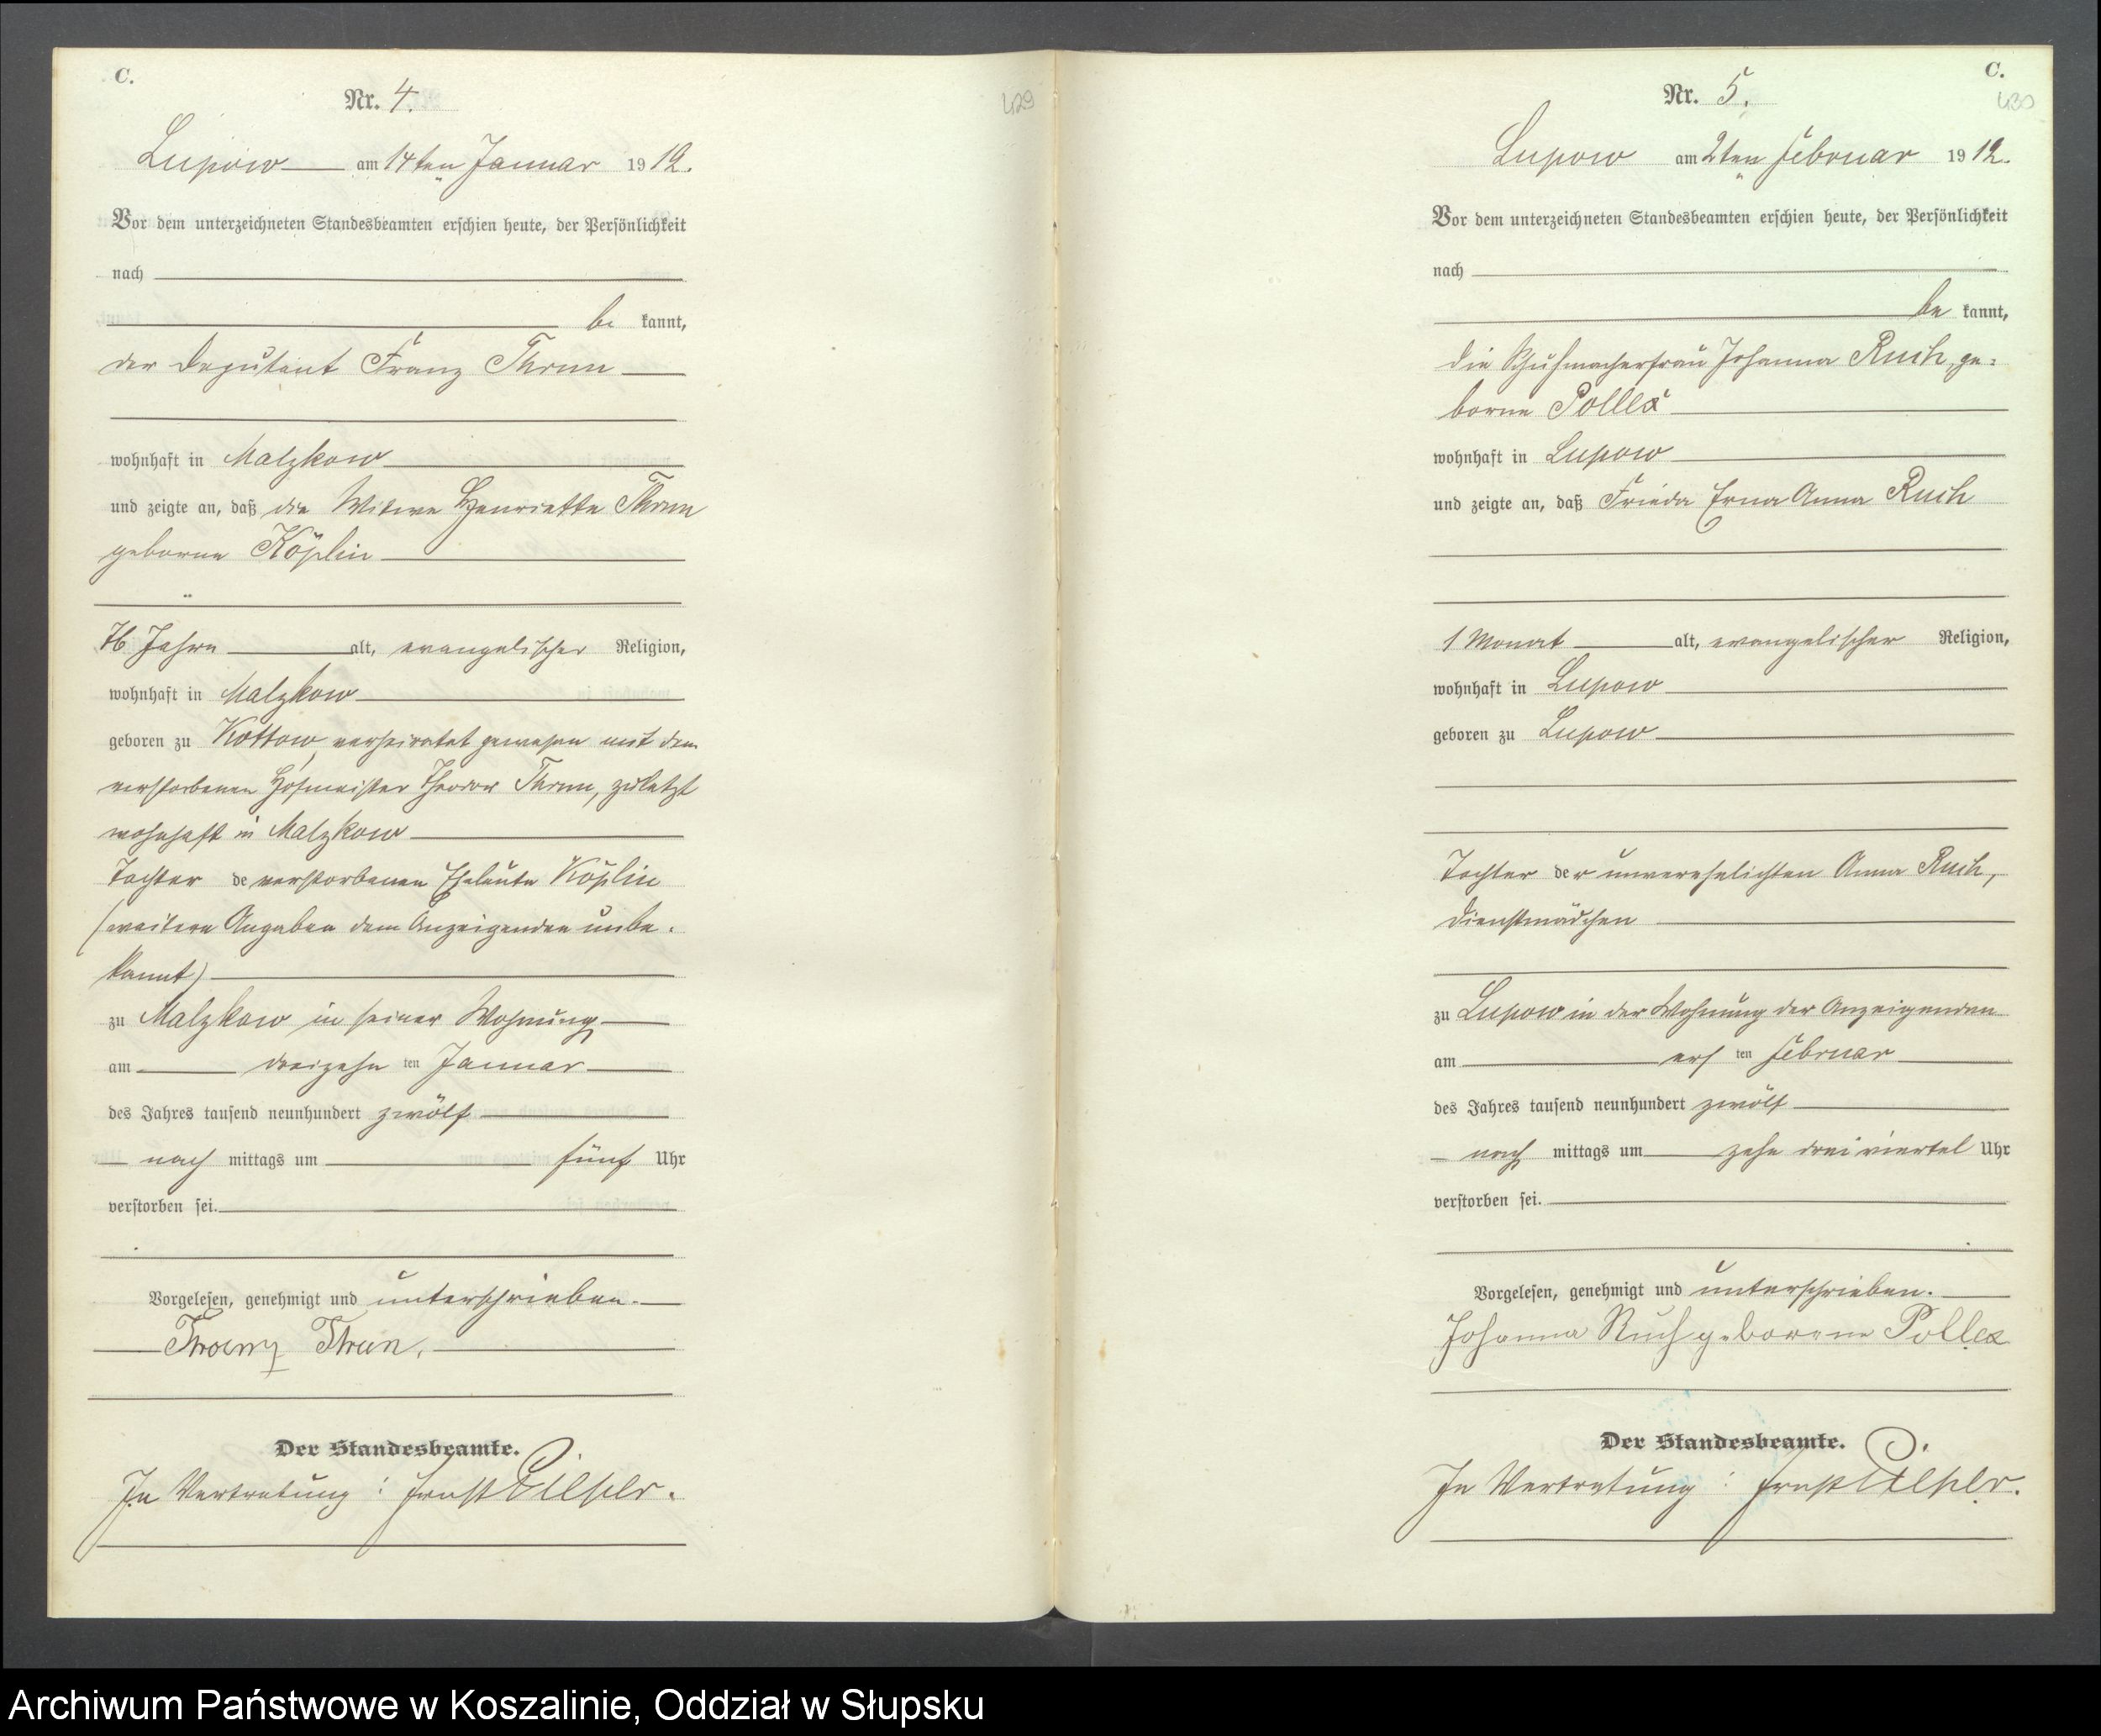 C.
Nr. 4.
429
Lupow am 14ten Januar 1912.
Vor dem unterzeichneten Standesbeamten erschien heute, der Persönlichkeit
nach
be kannt,
der Deputant Franz Thrun
wohnhaft in Malzkow
und zeigte an, daß die Witwe Henriette Thrun
geborne Köplin
76 Jahre alt, evangelischer Religion,
wohnhaft in Malzkow
geboren zu Kottow, verheiratet gewesen mit dem
verstorbenen Hofmeister Theodor Thrun, zuletzt
wohnhaft in Malzkow
Tochter de verstorbenen Eheleute Köplin
(weitere Angaben dem Anzeigenden unbe-
kannt)
zu Malzkow in seiner Wohnung
am dreizehn ten Januar
des Jahres tausend neunhundert zwölf
nach mittags um fünf Uhr
verstorben sei.
Vorgelesen, genehmigt und unterschrieben.
Franz Thrun.
Der Standesbeamte.
In Vertretung: Ernst
C.
Nr. 5.
430
Lupow am 2ten Februar 1912.
Vor dem unterzeichneten Standesbeamten erschien heute, der Persönlichkeit
nach
be kannt,
die Schuhmacherfrau Johanna Ruch, ge=
borne Pollex
wohnhaft in Lupow
und zeigte an, daß Frieda Erna Anna Ruch
1 Monat alt, evangelischer Religion,
wohnhaft in Lupow
geboren zu Lupow
Tochter der unverehelichten Anna Ruch,
Dienstmädchen
zu Lupow in der Wohnung der Anzeigenden
am ers ten Februar
des Jahres tausend neunhundert zwölf
nach mittags um zehn dreiviertel Uhr
verstorben sei.
Vorgelesen, genehmigt und unterschrieben.
Johanna Ruch geborene Pollex
Der Standesbeamte.
In Vertretung: Ernst
Archiwum Państwowe w Koszalinie, Oddział w Słupsku